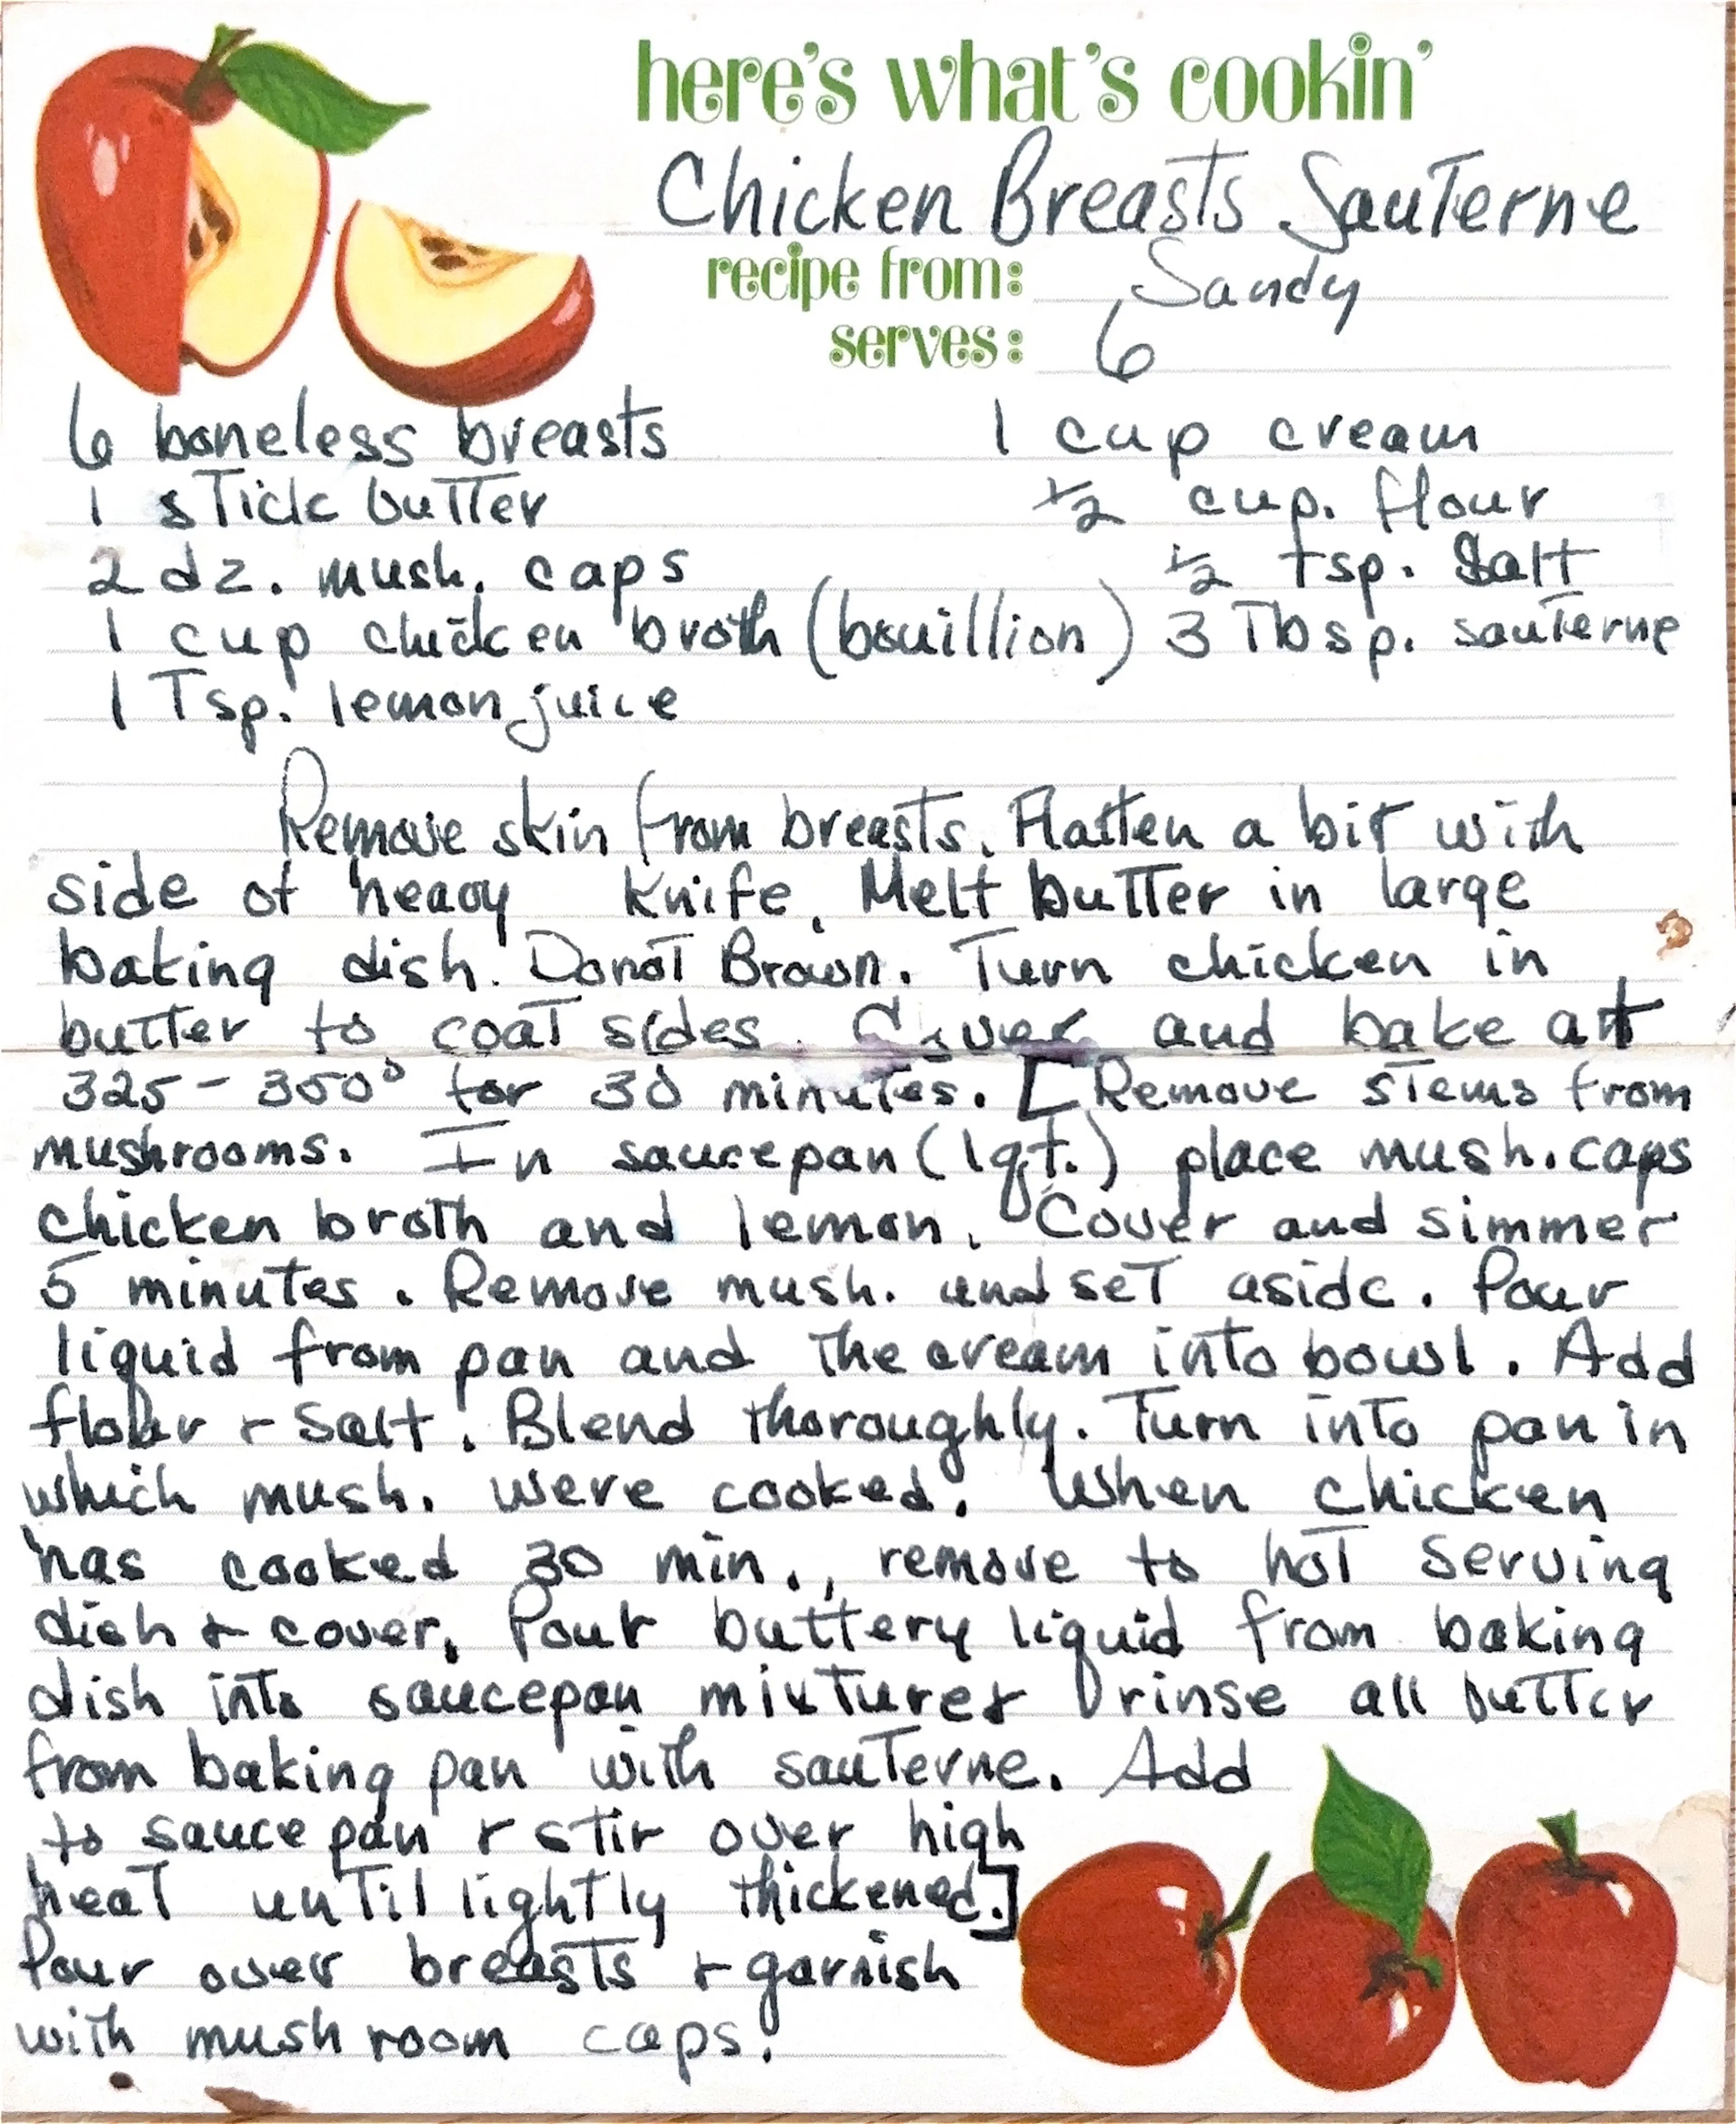 here's what's cookin'
Chicken Breasts Sauterne
recipe from: Sandy
serves: 6
6 boneless breasts 1 cup cream
1 stick butter 1/2 cup. flour
2 dz. mush. caps 1/2 tsp. Salt
1 cup chicken broth (bouillion) 3 Tbsp. sauterne
1 Tsp. lemon juice
Remove skin from breasts. Flatten a bit with
side of heavy knife. Melt butter in large
baking dish. Donot Brown. Turn chicken in
butter to coat sides. Cover and bake at
325-350° for 30 minutes. [Remove stems from
mushrooms. In saucepan (1qt.) place mush. caps
chicken broth and lemon. Cover and simmer
5 minutes. Remove mush. and set aside. Pour
liquid from pan and the cream into bowl. Add
flour + Salt. Blend thoroughly. Turn into pan in
which mush. were cooked. When chicken
has cooked 30 min., remove to hot serving
dish + cover. Pour buttery liquid from baking
dish into saucepan mixture + rinse all butter
from baking pan with sauterne. Add
to sauce pan + stir over high
heat until lightly thickened.]
Pour over breasts + garnish
with mushroom caps.